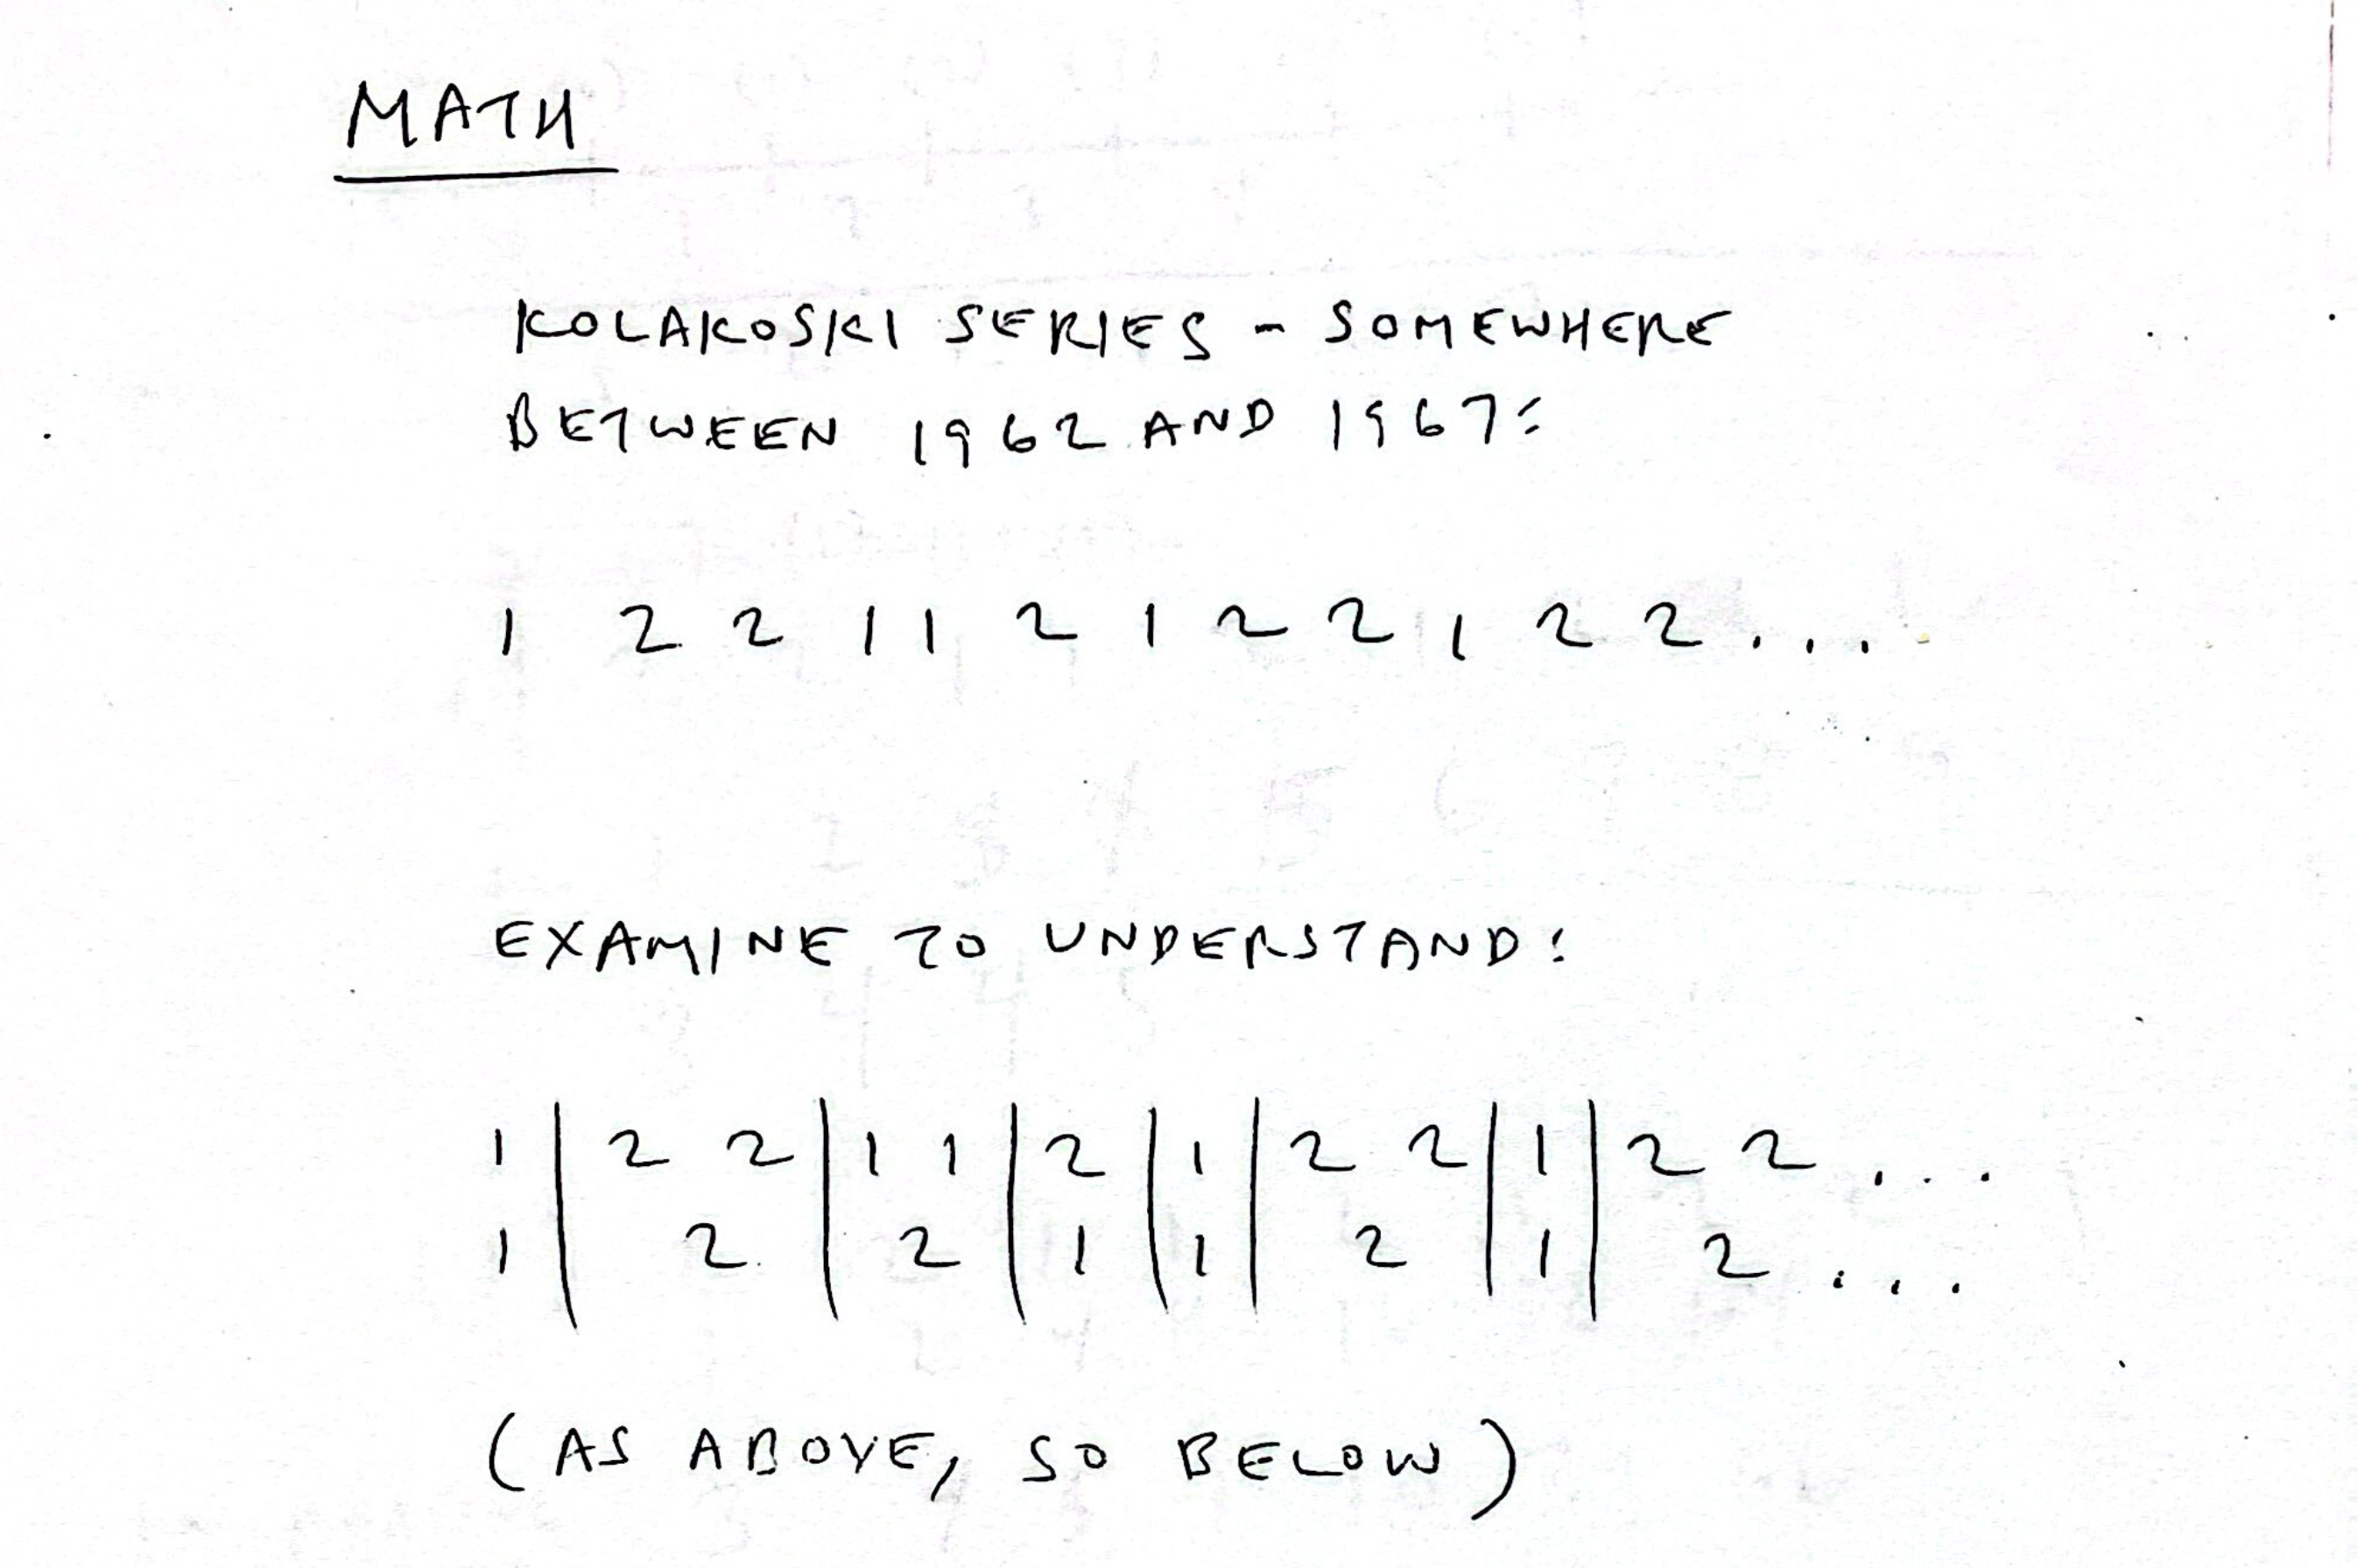 MATH
KOLAKOSKI SERIES - SOMEWHERE
BETWEEN 1962 AND 1967:
1 2 2 1 1 2 1 2 2 1 2 2 . . .
EXAMINE TO UNDERSTAND:
1 | 2 2 | 1 1 | 2 | 1 | 2 2 | 1 | 2 2 . . .
1 | 2 | 2 | 1 | 1 | 2 | 1 | 2 . . .
(AS ABOVE, SO BELOW)